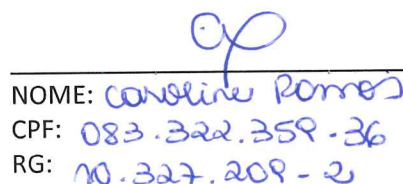 NOME: Caroline Ramos
CPF: 083.322.359-36
RG: 10.327.209-2